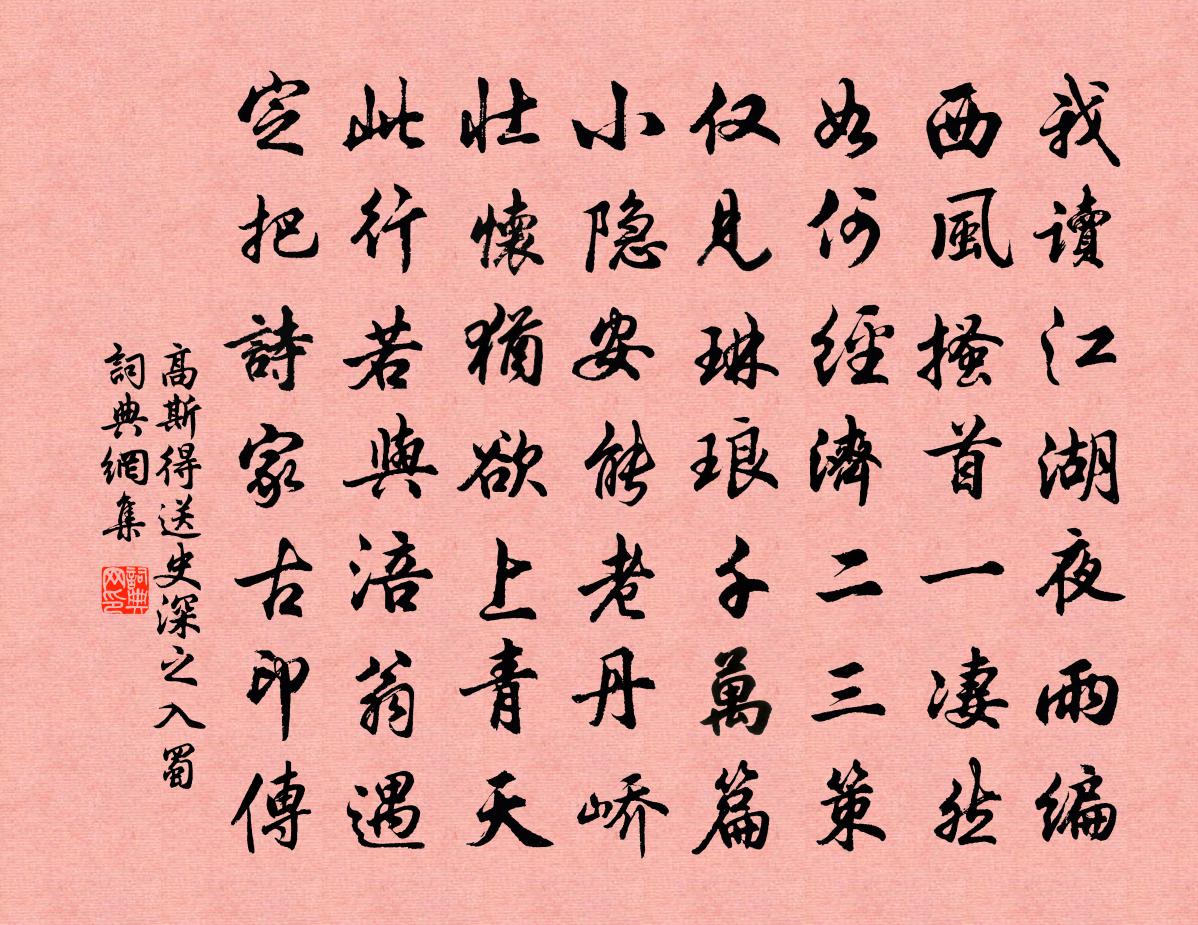 我读江湖夜雨编
西風搔首一凄然
如何經濟二三策
仅見琳琅千萬篇
小隐安能老丹峤
壮懷猶欲上青天
此行若與涪翁遇
定把詩家古印傳
高斯得送史深之入蜀
詞典網集
詞典网印